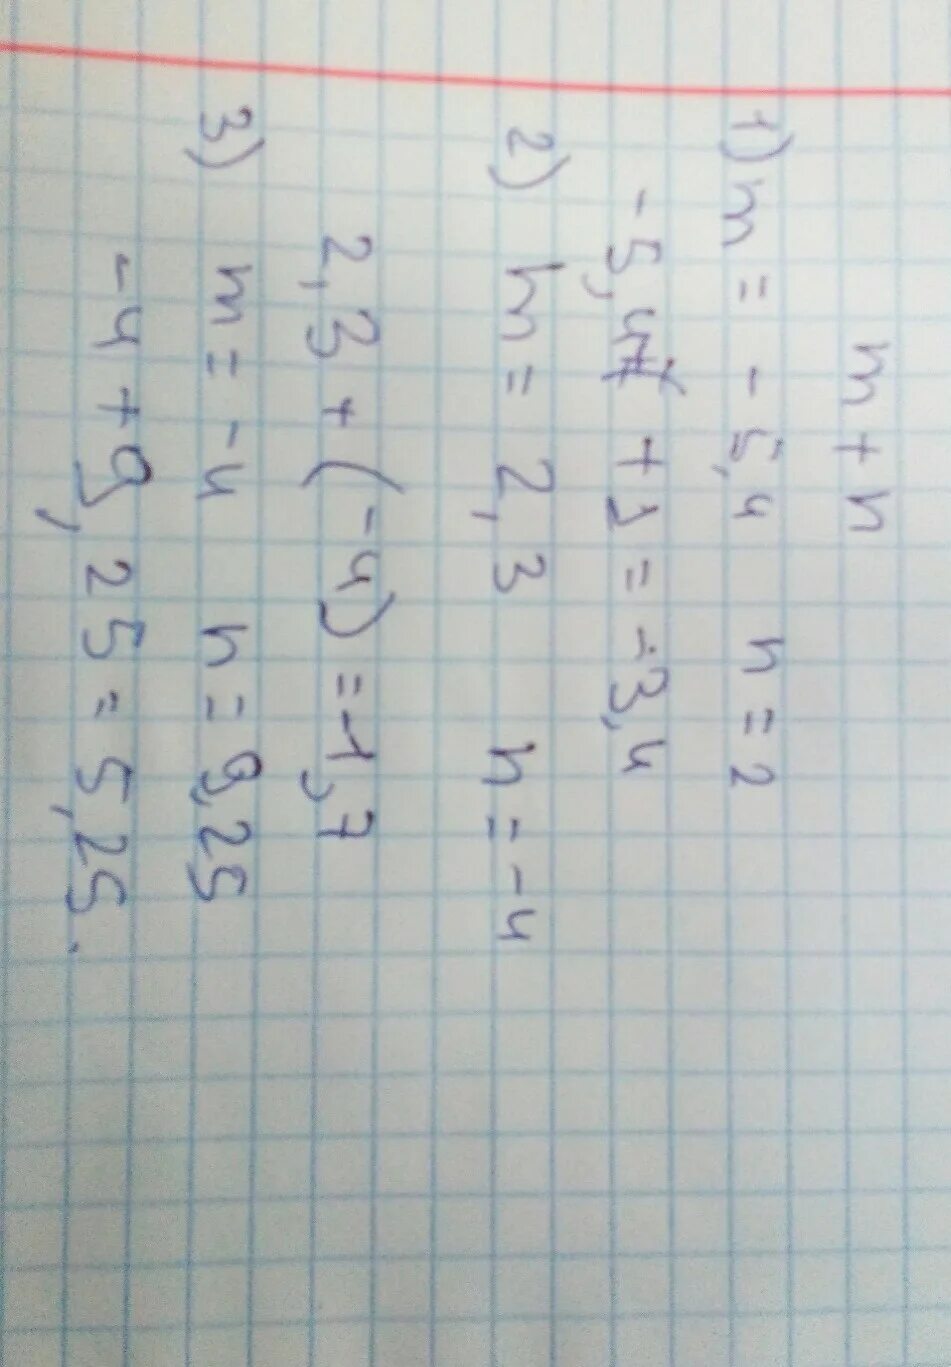 m + n
1) m = - 5,4 n = 2
-5,4 + 2 = -3,4
2) m = 2,3 n = -4
2,3 + (-4) = -1,7
3) m = -4 n = 9,25
-4 + 9,25 = 5,25.